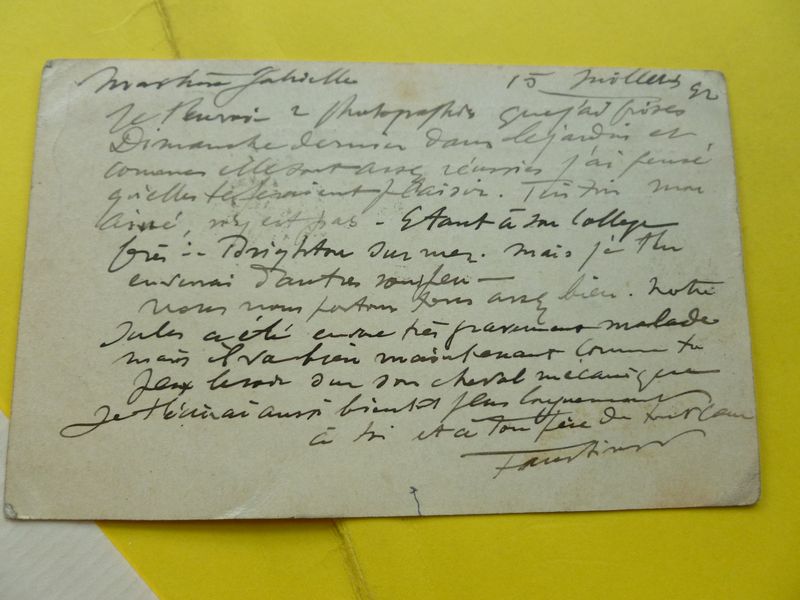 Ma chère Gabrielle 15 Juillet 92
Je t'envoie 2 photographies que j'ai prises
Dimanche dernier dans le jardin et
comme elles sont assez réussies j'ai pensé
qu'elles te feraient plaisir. mon
ainé, n'y est pas - Etant à son College
près Brighton sur mer. mais je t'en
enverrai d'autres sous peu -
nous nous portons tous assez bien. notre
Jules a été encore très gravement malade
mais il va bien maintenant comme tu
peux le voir sur son cheval mecanique
Je t'écrirai aussi bientôt plus longuement
à toi et à ton père de tout coeur